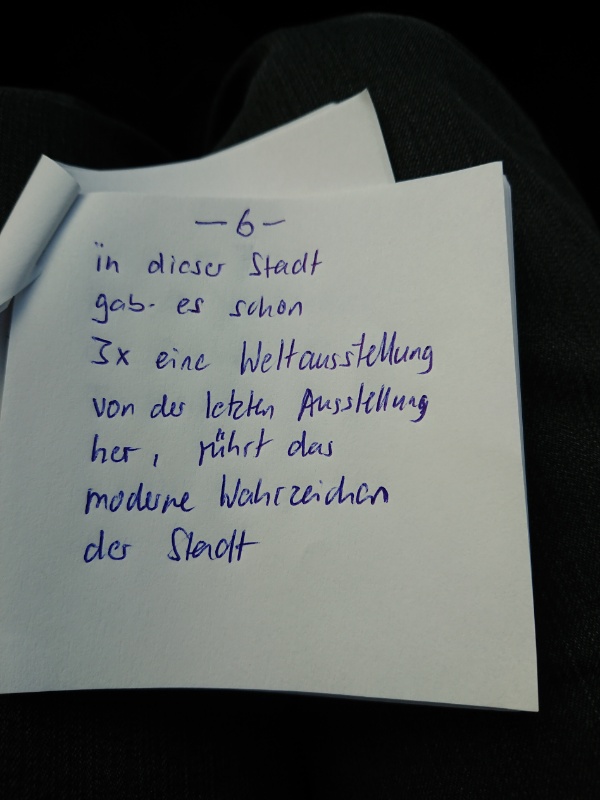 - 6 -
in dieser Stadt
gab es schon
3x eine Weltausstellung
von der letzten Ausstellung
her, rührt das
moderne Wahrzeichen
der Stadt